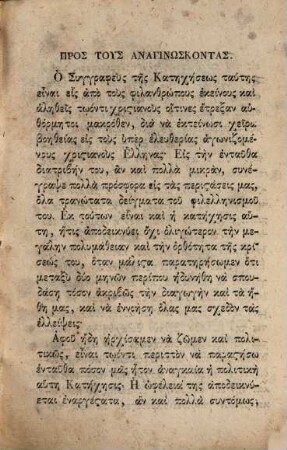 ΠΡΟΣ ΤΟΥΣ ΑΝΑΓΙΝΩΣΚΟΝΤΑΣ.
Ὁ Συγγραφεὺς τῆς Κατηχήσεως ταύτης
εἶναι εἷς ἀπὸ τοὺς φιλανθρώπους ἐκείνους καὶ
ἀληθεῖς τῳόντι χριϛιανοὺς οἵτινες ἔτρεξαν αὐ-
θόρμητοι μακρόθεν, διὰ νὰ ἐκτείνωσι χεῖρα
βοηθείας εἰς τοὺς ὑπὲρ ἐλευθερίας ἀγωνιζομέ-
νους χριϛιανοὺς Ἕλληνας· Εἰς τὴν ἐνταῦθα
διατριβήν του, ἂν καὶ πολλὰ μικρὰν, συνέ-
γραψε πολλὰ πρόσφορα εἰς τὰς περιϛάσεις μας,
ὅλα τρανώτατα δείγματα τοῦ φιλελληνισμοῦ
του. Ἐκ τούτων εἶναι καὶ ἡ κατήχησις αὕ-
τη, ἥτις ἀποδεικνύει ὄχι ὀλιγώτερον τὴν με-
γάλην πολυμάθειαν καὶ τὴν ὀρθότητα τῆς κρί-
σεώς του, ὅταν μάλιϛα παρατηρήσωμεν ὅτι
μεταξὺ δύο μηνῶν περίπου ἠδυνήθη νὰ σπου-
δάσῃ τόσον ἀκριβῶς τὴν διαγωγὴν καὶ τὰ ἤ-
θη μας, καὶ νὰ ἐννοήσῃ ὅλας σχεδὸν τὰς
ἐλλείψεις·
Ἀφοῦ ἤδη ἠρχίσαμεν νὰ ζῶμεν καὶ πολι-
τικῶς, εἶναι τῳόντι περιττὸν νὰ παραϛήσω
ἐνταῦθα πόσον μᾶς ἦτον ἀναγκαία ἡ πολιτικὴ
αὕτη Κατήχησις· Ἡ ὠφέλειά της ἀποδεικνύ-
εται ἐναργέϛατα, ἂν καὶ πολλὰ συντόμως,